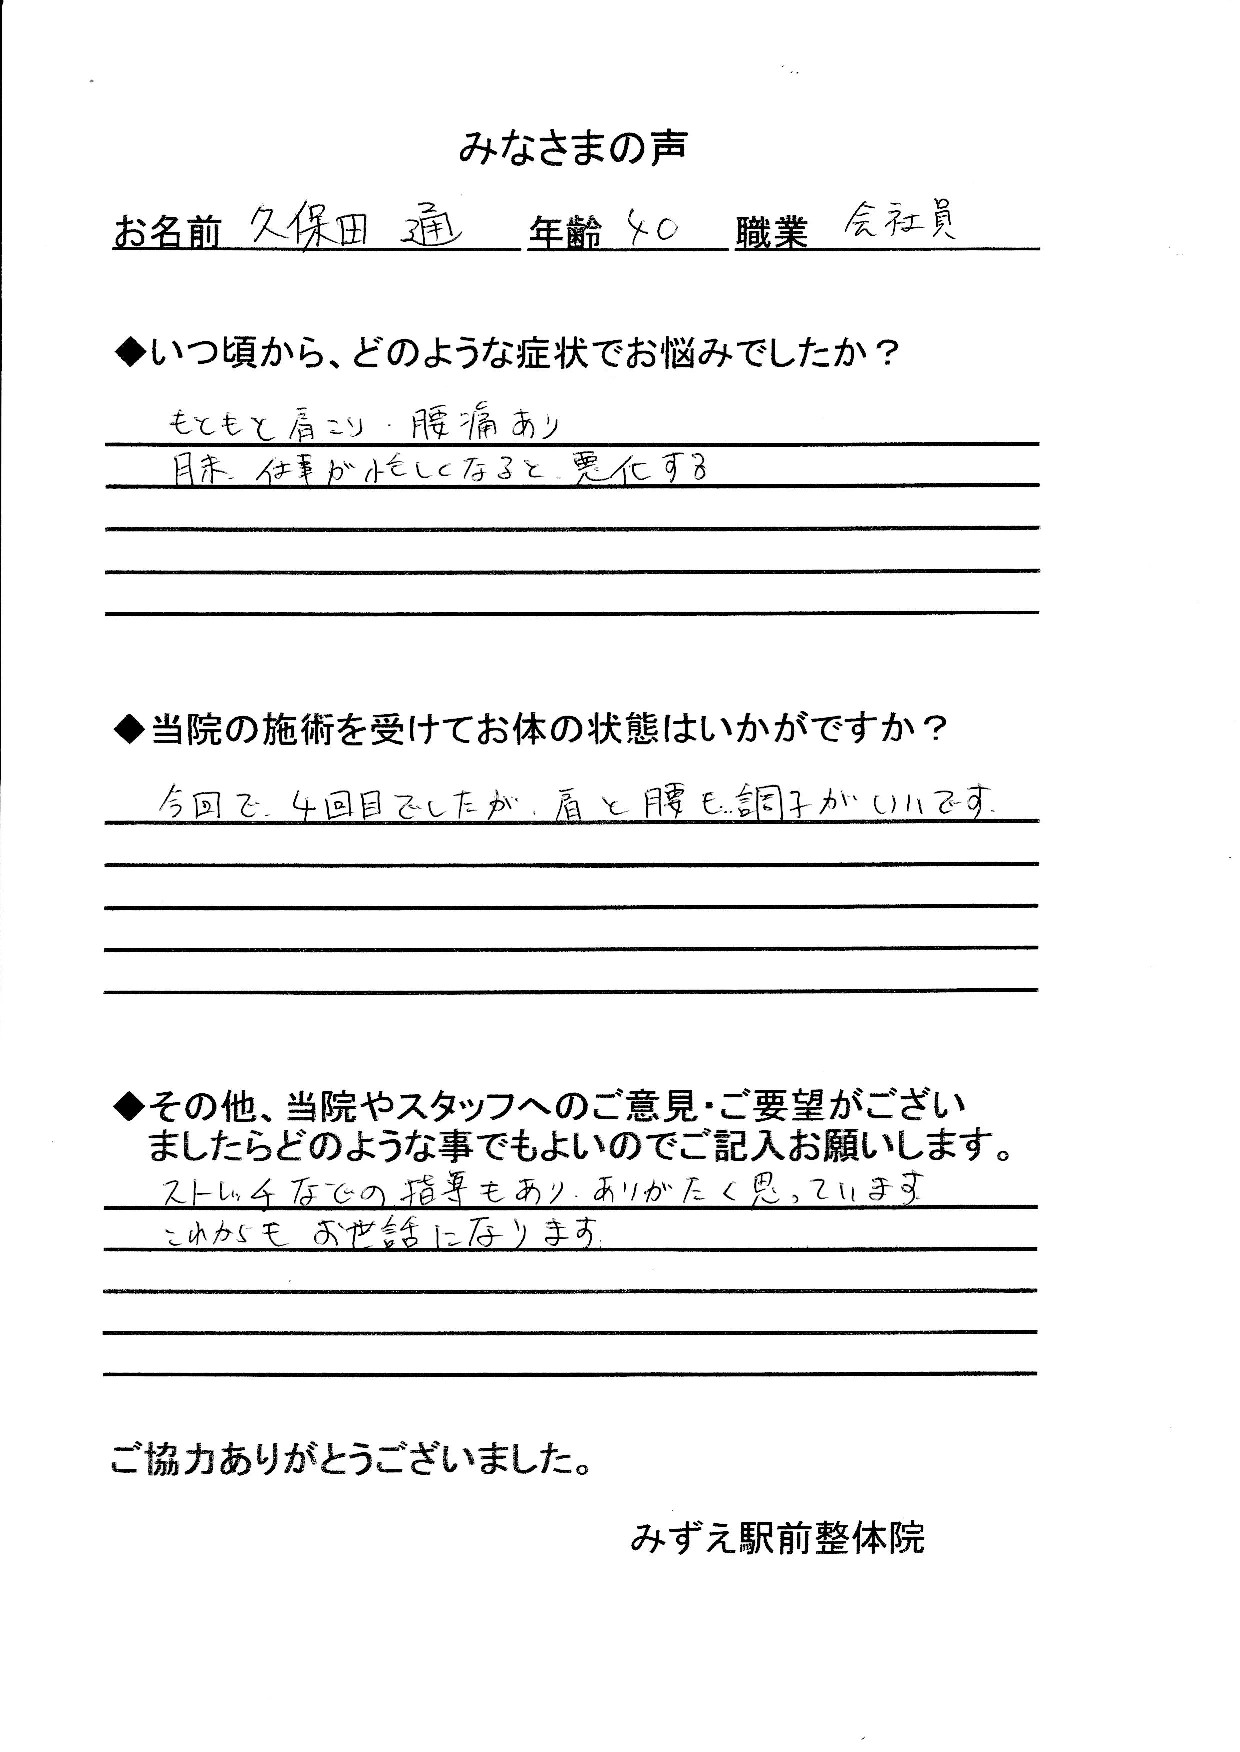 みなさまの声
お名前 久保田 通 年齢 40 職業 会社員
◆いつ頃から、どのような症状でお悩みでしたか？
もともと肩こり・腰痛あり
月末、仕事が忙しくなると、悪化する
◆当院の施術を受けてお体の状態はいかがですか？
今回で、4回目でしたが、肩と腰も調子がいいです。
◆その他、当院やスタッフへのご意見・ご要望がござい
ましたらどのような事でもよいのでご記入お願いします。
ストレッチなでの指導もあり、ありがたく思っています
これからもお世話になります。
ご協力ありがとうございました。
みずえ駅前整体院